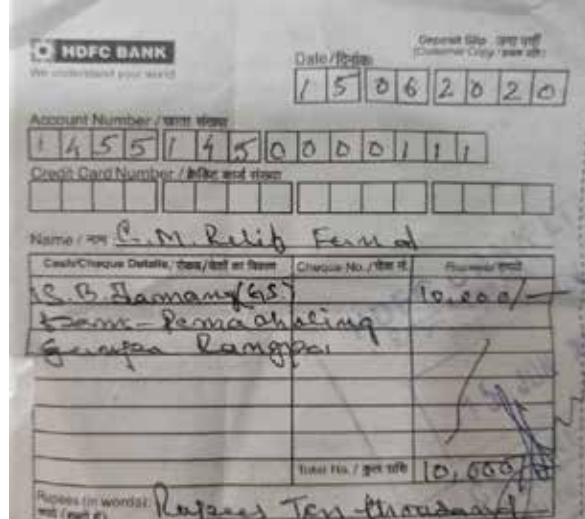 HDFC BANK
We understand your world
Deposit Slip / जमा पर्ची
(Customer Copy / ग्राहक प्रति)
Date / दिनांक
15062020
Account Number / खाता संख्या
14551450000111
Credit Card Number / क्रेडिट कार्ड संख्या
Name / नाम C. M. Relief Fund
Cash/Cheque Details / रोकड़/चेकों का विवरण Cheque No. / चेक नं. Rupees / रुपये
S. B. Tamang (GS) 10,000/-
Rangpo
Total Rs. / कुल राशि 10,000/-
Rupees (in words): Rupees Ten thousand